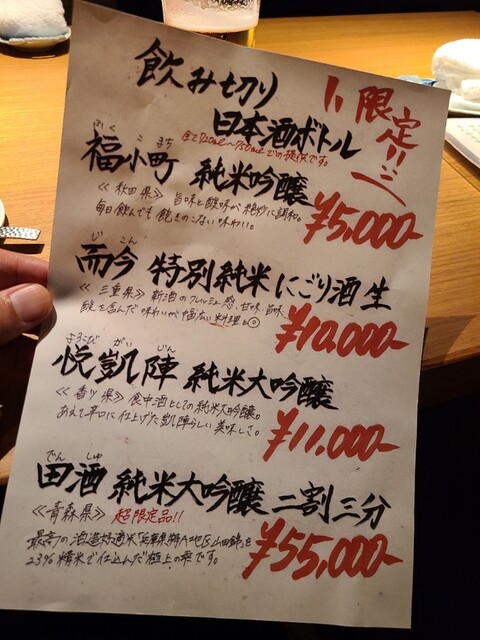 飲み切り
日本酒ボトル
限定!!
全て720ml~750mlでの提供です。
ふく こまち
福小町 純米吟醸
≪秋田県≫ 旨味と酸味が絶妙に調和。
毎日飲んでも飽きのこない味わい。
¥5,000-
じ こん
而今 特別純米 にごり酒 生
≪三重県≫ 新酒のフレッシュ感、甘味、旨味、
酸を含んだ味わいが幅広い料理に◎
¥10,000-
よろこび がい じん
悦凱陣 純米大吟醸
≪香川県≫ 食中酒としての純米大吟醸。
あえて辛口に仕上げた凱陣らしい美味しさ。
¥11,000-
でん しゅ
田酒 純米大吟醸 二割三分
≪青森県≫ 超限定品!!
最高の酒造好適米「兵庫県特A地区山田錦」を
23%精米で仕込んだ極上の雫です。
¥55,000-